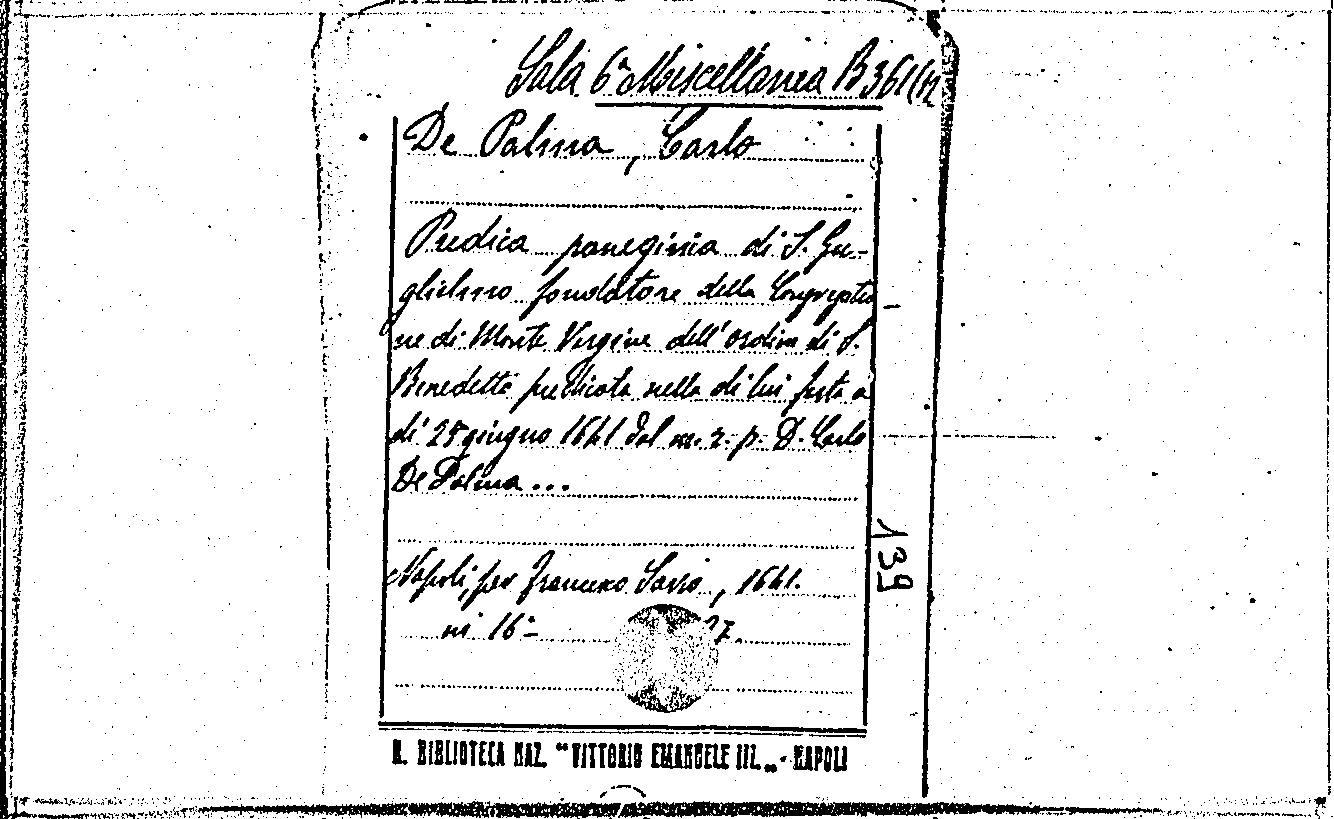 Sala 6ª Miscellanea B 361(12
De Palma, Carlo
Predica panegirica di S. Gu-
glielmo fondatore della Congregatio-
ne di Monte Vergine dell'ordine di S.
Benedetto predicata nella di lui festa a
di 25 giugno 1641 dal m. r. p. D. Carlo
De Palma...
139
Napoli, per Francesco Savio, 1641.
in 16º 27.
R. BIBLIOTECA NAZ. "VITTORIO EMANUELE III„ - NAPOLI